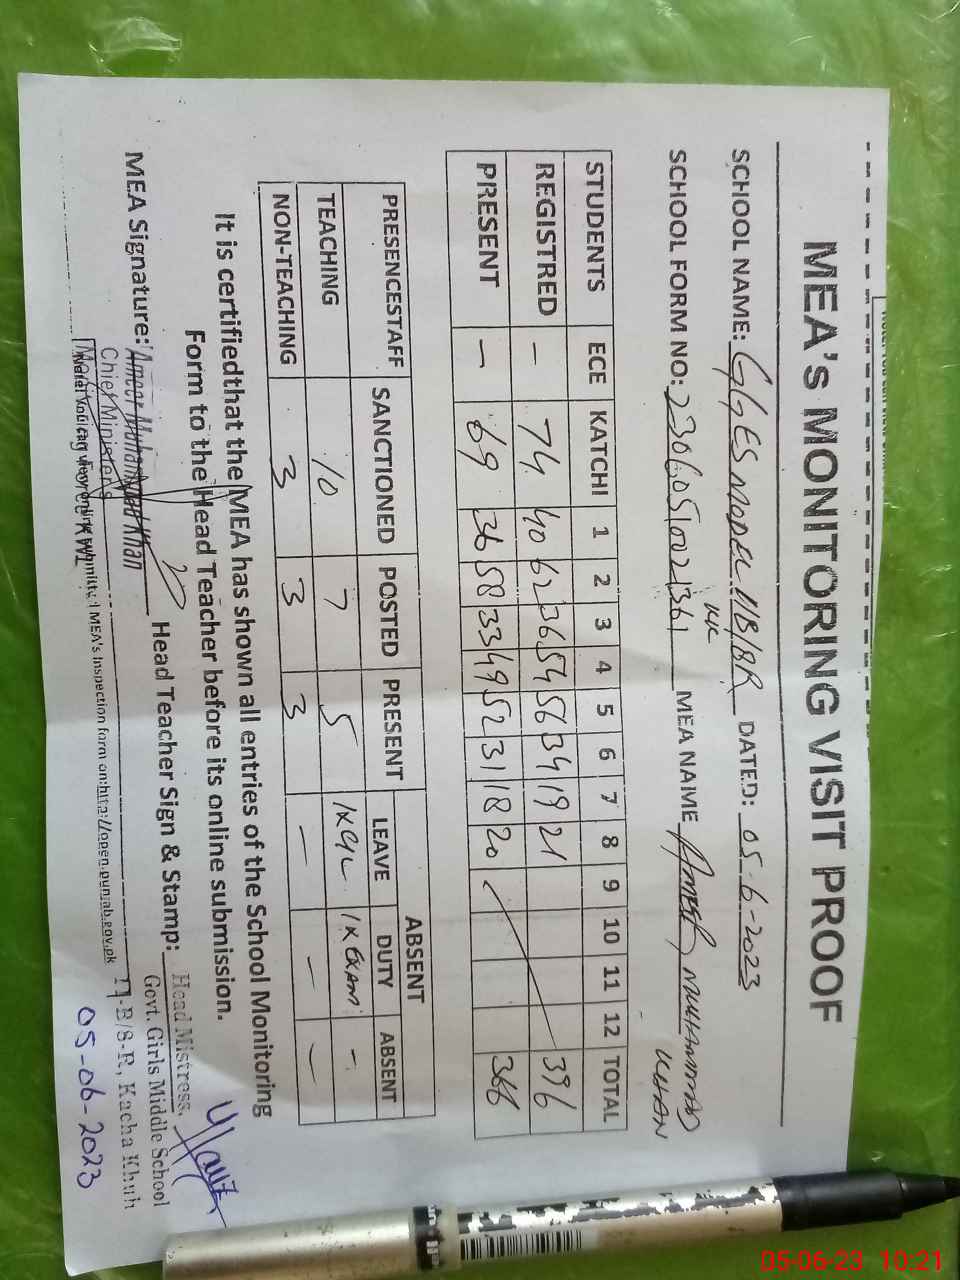 MEA's MONITORING VISIT PROOF
SCHOOL NAME: GGES MODEL 11B/8R DATED: 05-6-2023
KK
SCHOOL FORM NO: 23060510021361 MEA NAME Ameer MUHAMMAD
KHAN
STUDENTS ECE KATCHI 1 2 3 4 5 6 7 8 9 10 11 12 TOTAL
REGISTRED - 74 40 62 36 54 56 34 19 21 396
PRESENT - 69 36 58 33 49 52 31 18 20 366
PRESENCESTAFF SANCTIONED POSTED PRESENT ABSENT
LEAVE DUTY ABSENT
TEACHING 10 7 5 1x 1x EXAM -
NON-TEACHING 3 3 3 - - -
It is certifiedthat the MEA has shown all entries of the School Monitoring
Form to the Head Teacher before its online submission.
MEA Signature: Ameer Muhammad Khan Head Teacher Sign & Stamp: Head Mistress,
Chief Minister's Govt. Girls Middle School
MEA's Inspection form on:http://open.punjab.gov.pk 11-B/8-R, Kacha Khuh
05-06-2023
05-06-23 10:21